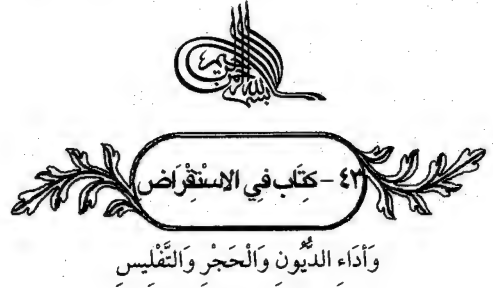 بسم الله الرحمن الرحيم
٤٣ - كِتَاب فِي الاسْتِقْرَاض
وَأَدَاء الدُّيُون وَالْحَجْرِ وَالتَّفْلِيسِ